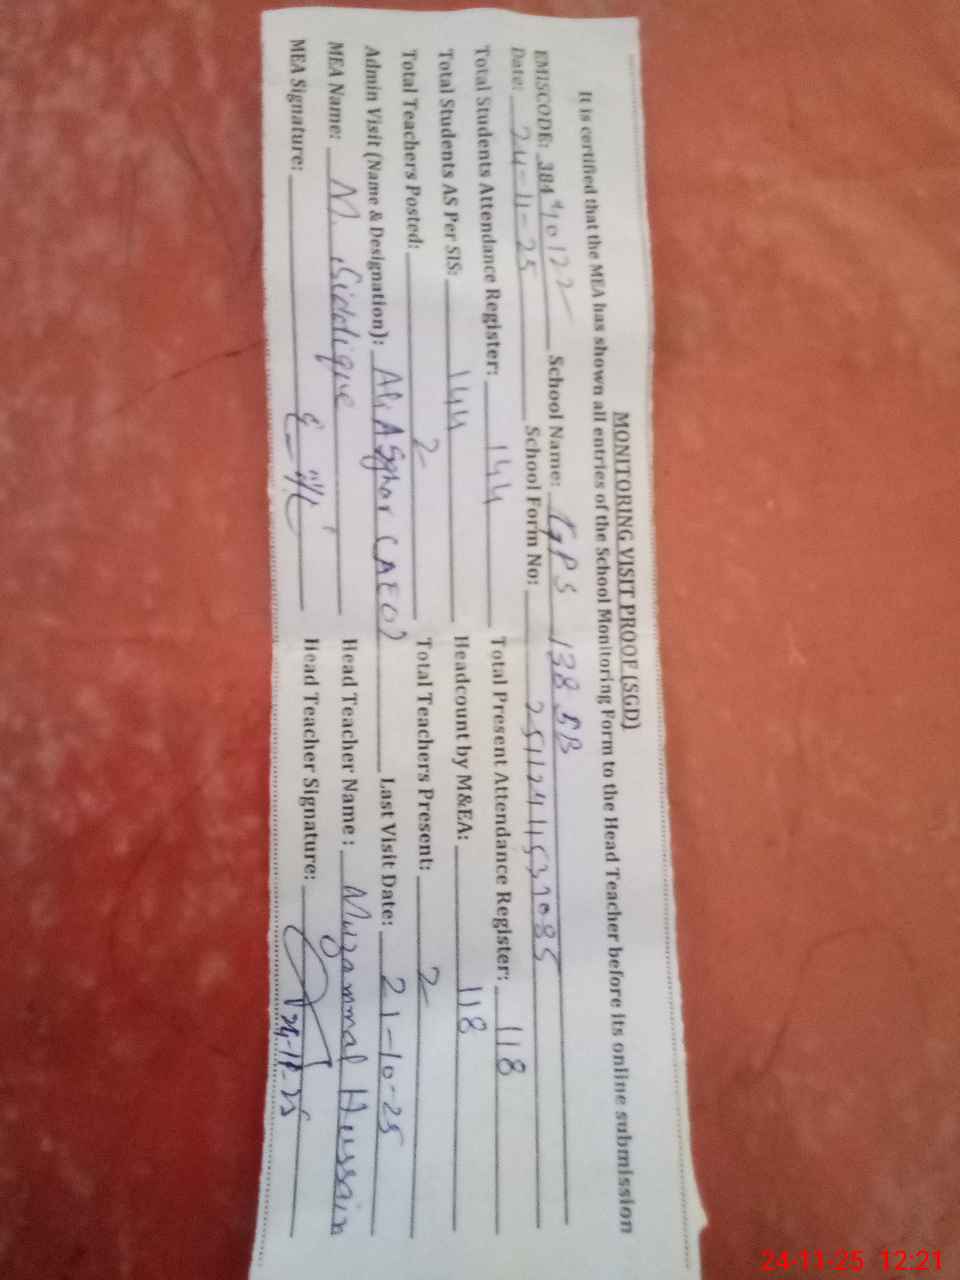 MONITORING VISIT PROOF (SGD)
It is certified that the MEA has shown all entries of the School Monitoring Form to the Head Teacher before its online submission
EMISCODE: 38440122 School Name: GPS 138 SB
Date: 24-11-25 School Form No:
Total Students Attendance Register: 144 Total Present Attendance Register: 118
Total Students AS Per SIS: 144 Headcount by M&EA: 118
Total Teachers Posted: 2 Total Teachers Present: 2
Admin Visit (Name & Designation): Ali Asghar (AEO) Last Visit Date: 21-10-25
MEA Name: M. Siddique Head Teacher Name : Muzammal Hussain
MEA Signature: Head Teacher Signature: 24-11-25
24-11-25 12:21